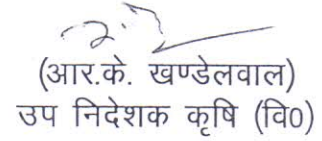 (आर.के. खण्डेलवाल)
उप निदेशक कृषि (वि0)